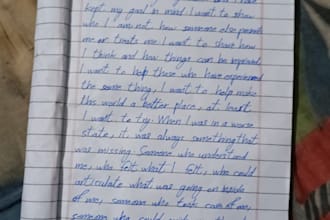 kept my goal in mind I want to show
who I am not how someone else
me or treats me. I want to share how
I think and how things can be improved
I want to help those who have experienced
the same thing, I want to help make
this world a better place, at least
I want to try. When I was in a worse
state, it was always something that
was missing. Someone who understand
me, who felt what I felt, who could
articulate what was going on inside
of me, someone who took care of me,
someone who could